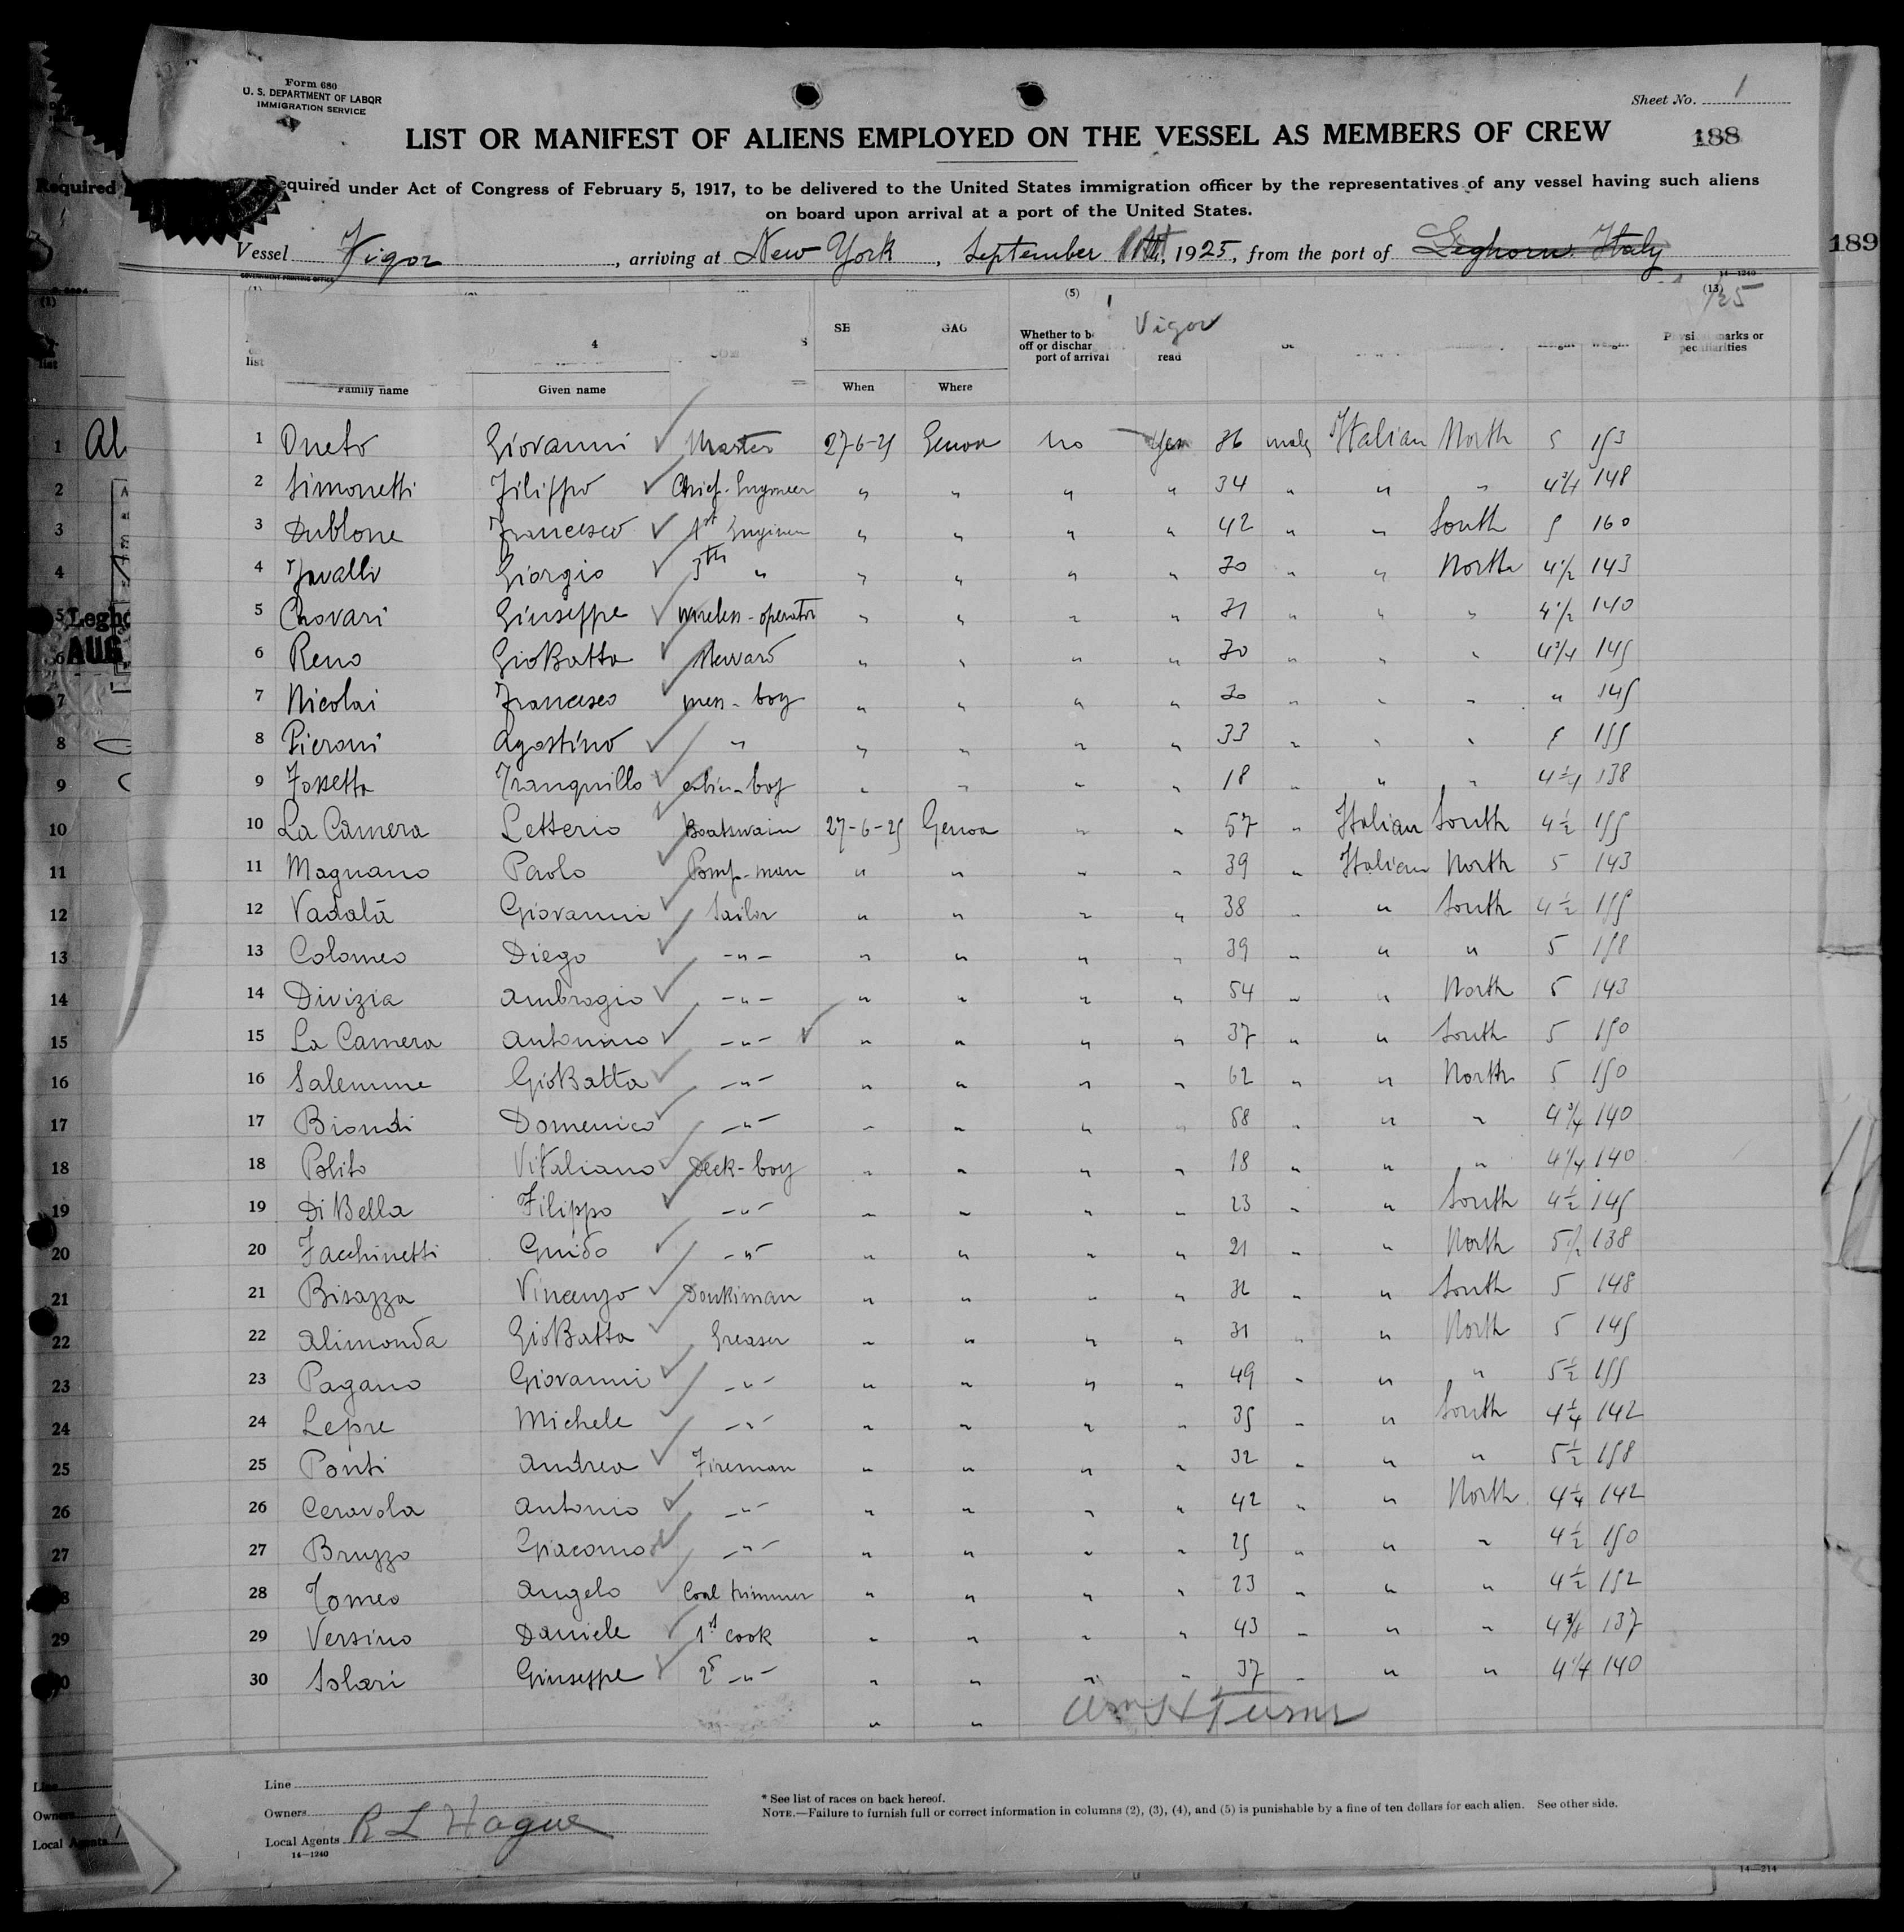 Form 680
U. S. DEPARTMENT OF LABOR
IMMIGRATION SERVICE
Sheet No. 1
LIST OR MANIFEST OF ALIENS EMPLOYED ON THE VESSEL AS MEMBERS OF CREW
188
Required under Act of Congress of February 5, 1917, to be delivered to the United States immigration officer by the representatives of any vessel having such aliens
on board upon arrival at a port of the United States.
Vessel Vigor, arriving at New York, September, 1925, from the port of Leghorn Italy
189
GOVERNMENT PRINTING OFFICE
14-1240
(5) (13)
Vigor
Whether to b
off or dischar
port of arrival
read
list
Family name Given name When Where
1 Oneto Giovanni Master 27-6-25 Genoa no yes 36 male Italian North 5 153
2 Simonetti Filippo Chief-Engineer " " " " 34 " " " 4 3/4 148
3 Dublone Francesco 1st Engineer " " " " 42 " " South 5 160
4 Giorgio 3th " " " " " 30 " " North 4 1/2 143
5 Chovari Giuseppe Wireless-operator " " " " 31 " " " 4 1/2 140
6 Reno GioBatta Steward " " " " 30 " " " 4 3/4 145
7 Nicolai Francesco mess-boy " " " " 30 " " " " 145
8 Pieroni Agostino " " " " " 33 " " " 5 155
9 Fossetta Tranquillo cabin-boy " " " " 18 " " " 4 1/4 138
10 La Camera Letterio Boatswain 27-6-25 Genoa " " 57 " Italian South 4 1/2 155
11 Magnano Paolo Pomp-man " " " " 39 " Italian North 5 143
12 Vadalà Giovanni Sailor " " " " 38 " " South 4 1/2 155
13 Colomeo Diego -"- " " " " 39 " " " 5 158
14 Divizia Ambrogio -"- " " " " 54 " " North 5 143
15 La Camera Antonino -"- " " " " 37 " " South 5 150
16 Salemme GioBatta -"- " " " " 62 " " North 5 150
17 Biondi Domenico -"- " " " " 58 " " " 4 3/4 140
18 Polito Vitaliano Deck-boy " " " " 18 " " " 4 1/4 140
19 Di Bella Filippo -"- " " " " 23 " " South 4 1/2 145
20 Facchinetti Guido -"- " " " " 21 " " North 5 1/2 138
21 Bisazza Vincenzo Donkiman " " " " 36 " " South 5 148
22 Alimonda GioBatta Greaser " " " " 31 " " North 5 145
23 Pagano Giovanni -"- " " " " 49 " " " 5 1/2 155
24 Lepre Michele -"- " " " " 35 " " South 4 1/4 142
25 Ponti Andrea Fireman " " " " 32 " " " 5 1/2 158
26 Ceravola Antonio -"- " " " " 42 " " North 4 1/4 142
27 Bruzzo Giacomo -"- " " " " 25 " " " 4 1/2 150
28 Tomeo Angelo Coal trimmer " " " " 23 " " " 4 1/2 152
29 Versino Daniele 1st cook " " " " 43 " " " 4 3/8 137
30 Solari Giuseppe 2d -"- " " " " 37 " " " 4 1/4 140
" " Wm H Turner
Line
Owners
Local Agents R L Hague
14-1240
* See list of races on back hereof.
NOTE.—Failure to furnish full or correct information in columns (2), (3), (4), and (5) is punishable by a fine of ten dollars for each alien. See other side.
14-214